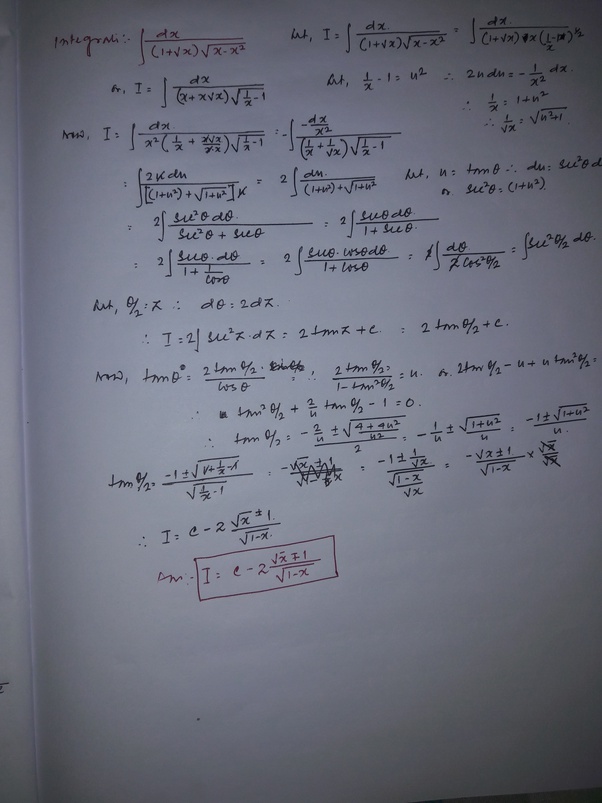 Integrate:- ∫ dx / (1+√x)√(x-x²)   Let, I = ∫ dx / (1+√x)√(x-x²) = ∫ dx / (1+√x) x (1/x-1)^1/2
or, I = ∫ dx / (x+x√x)√(1/x-1)   Let, 1/x - 1 = u² ∴ 2u du = -1/x² dx.
∴ 1/x = 1+u²
∴ 1/√x = √(u²+1).
Now, I = ∫ dx / x²(1/x + x√x/x·x)√(1/x-1) = -∫ -dx/x² / (1/x + 1/√x)√(1/x-1)
= ∫ 2u du / [(1+u²) + √(1+u²)]u = 2∫ du / (1+u²)+√(1+u²)   Let, u = tanθ ∴ du = sec²θ dθ
or sec²θ = (1+u²)
= 2∫ sec²θ dθ / sec²θ + secθ = 2∫ secθ dθ / 1+secθ
= 2∫ secθ·dθ / 1 + 1/cosθ = 2∫ secθ·cosθ dθ / 1+cosθ = 2∫ dθ / 2cos²θ/2 = ∫ sec²θ/2 dθ.
Let, θ/2 = z ∴ dθ = 2dz.
∴ I = 2∫ sec²z·dz = 2tanz + c. = 2tanθ/2 + c.
Now, tanθ = 2tanθ/2 · / cosθ = ∴ 2tanθ/2 / 1-tan²θ/2 = u. or 2tanθ/2 - u + u tan²θ/2 =
∴ tan²θ/2 + 2/u tanθ/2 - 1 = 0.
∴ tanθ/2 = (-2/u ± √((4+4u²)/u²)) / 2 = -1/u ± √(1+u²)/u = (-1±√(1+u²))/u.
tanθ/2 = (-1±√(1+1/x-1)) / √(1/x-1) = = (-1 ± 1/√x) / (√(1-x)/√x) = (-√x ± 1)/√(1-x) × √x/√x
∴ I = c - 2 (√x ± 1)/√(1-x).
Ans:- I = c - 2 (√x ∓ 1)/√(1-x)